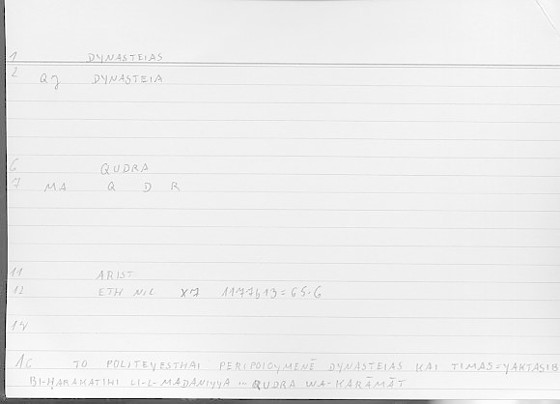 1 DYNASTEIAS
2 Qj DYNASTEIA
6 QUDRA
7 MA Q D R
11 ARIST
12 ETH NIC X7 1177b13=65.6
14
16 TO POLITEYESTHAI PERIPOIOYMENĒ DYNASTEIAS KAI TIMAS=YAKTASIB
BI-ḤARAKATIHI LI-L-MADANIYYA … QUDRA WA-KARĀMĀT